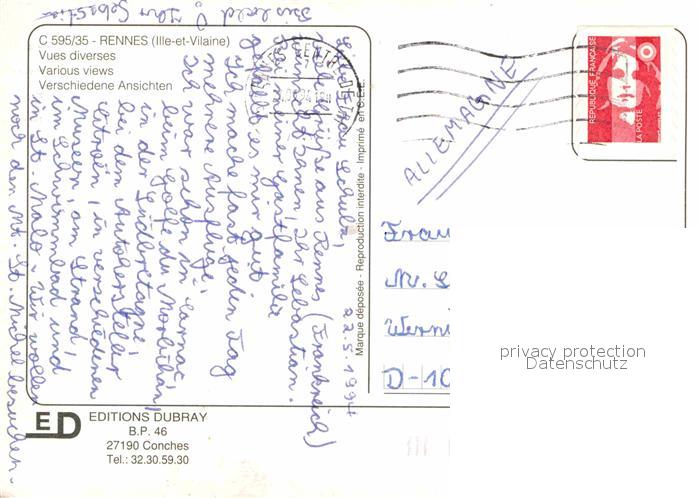 C 595/35 - RENNES (Ille-et-Vilaine)
Vues diverses
Various views
Verschiedene Ansichten
Liebe Frau Schulz,
viele Grüße aus Rennes (Frankreich)
Ihr Sebastian.
Bei meiner Gastfamilie
gefällt es mir gut.
Ich mache fast jeden Tag
mehrere Ausflüge.
Ich war schon in Carnac,
beim Golfe du Morbihan
in der Südbretagne,
bei dem Autohersteller
Citroën, in verschiedenen
Museen, am Strand,
im Schwimmbad und
in St. Malo. Wir wollen
noch den Mt. St. Michel besuchen.
Bis bald! Ihr Sebastian
22.5.1994
Marque déposée - Reproduction interdite - Imprimé en C.E.E.
ALLEMAGNE
REPUBLIQUE FRANÇAISE
LA POSTE
Frau
D-10
privacy protection
Datenschutz
ED
EDITIONS DUBRAY
B.P. 46
27190 Conches
Tel.: 32.30.59.30